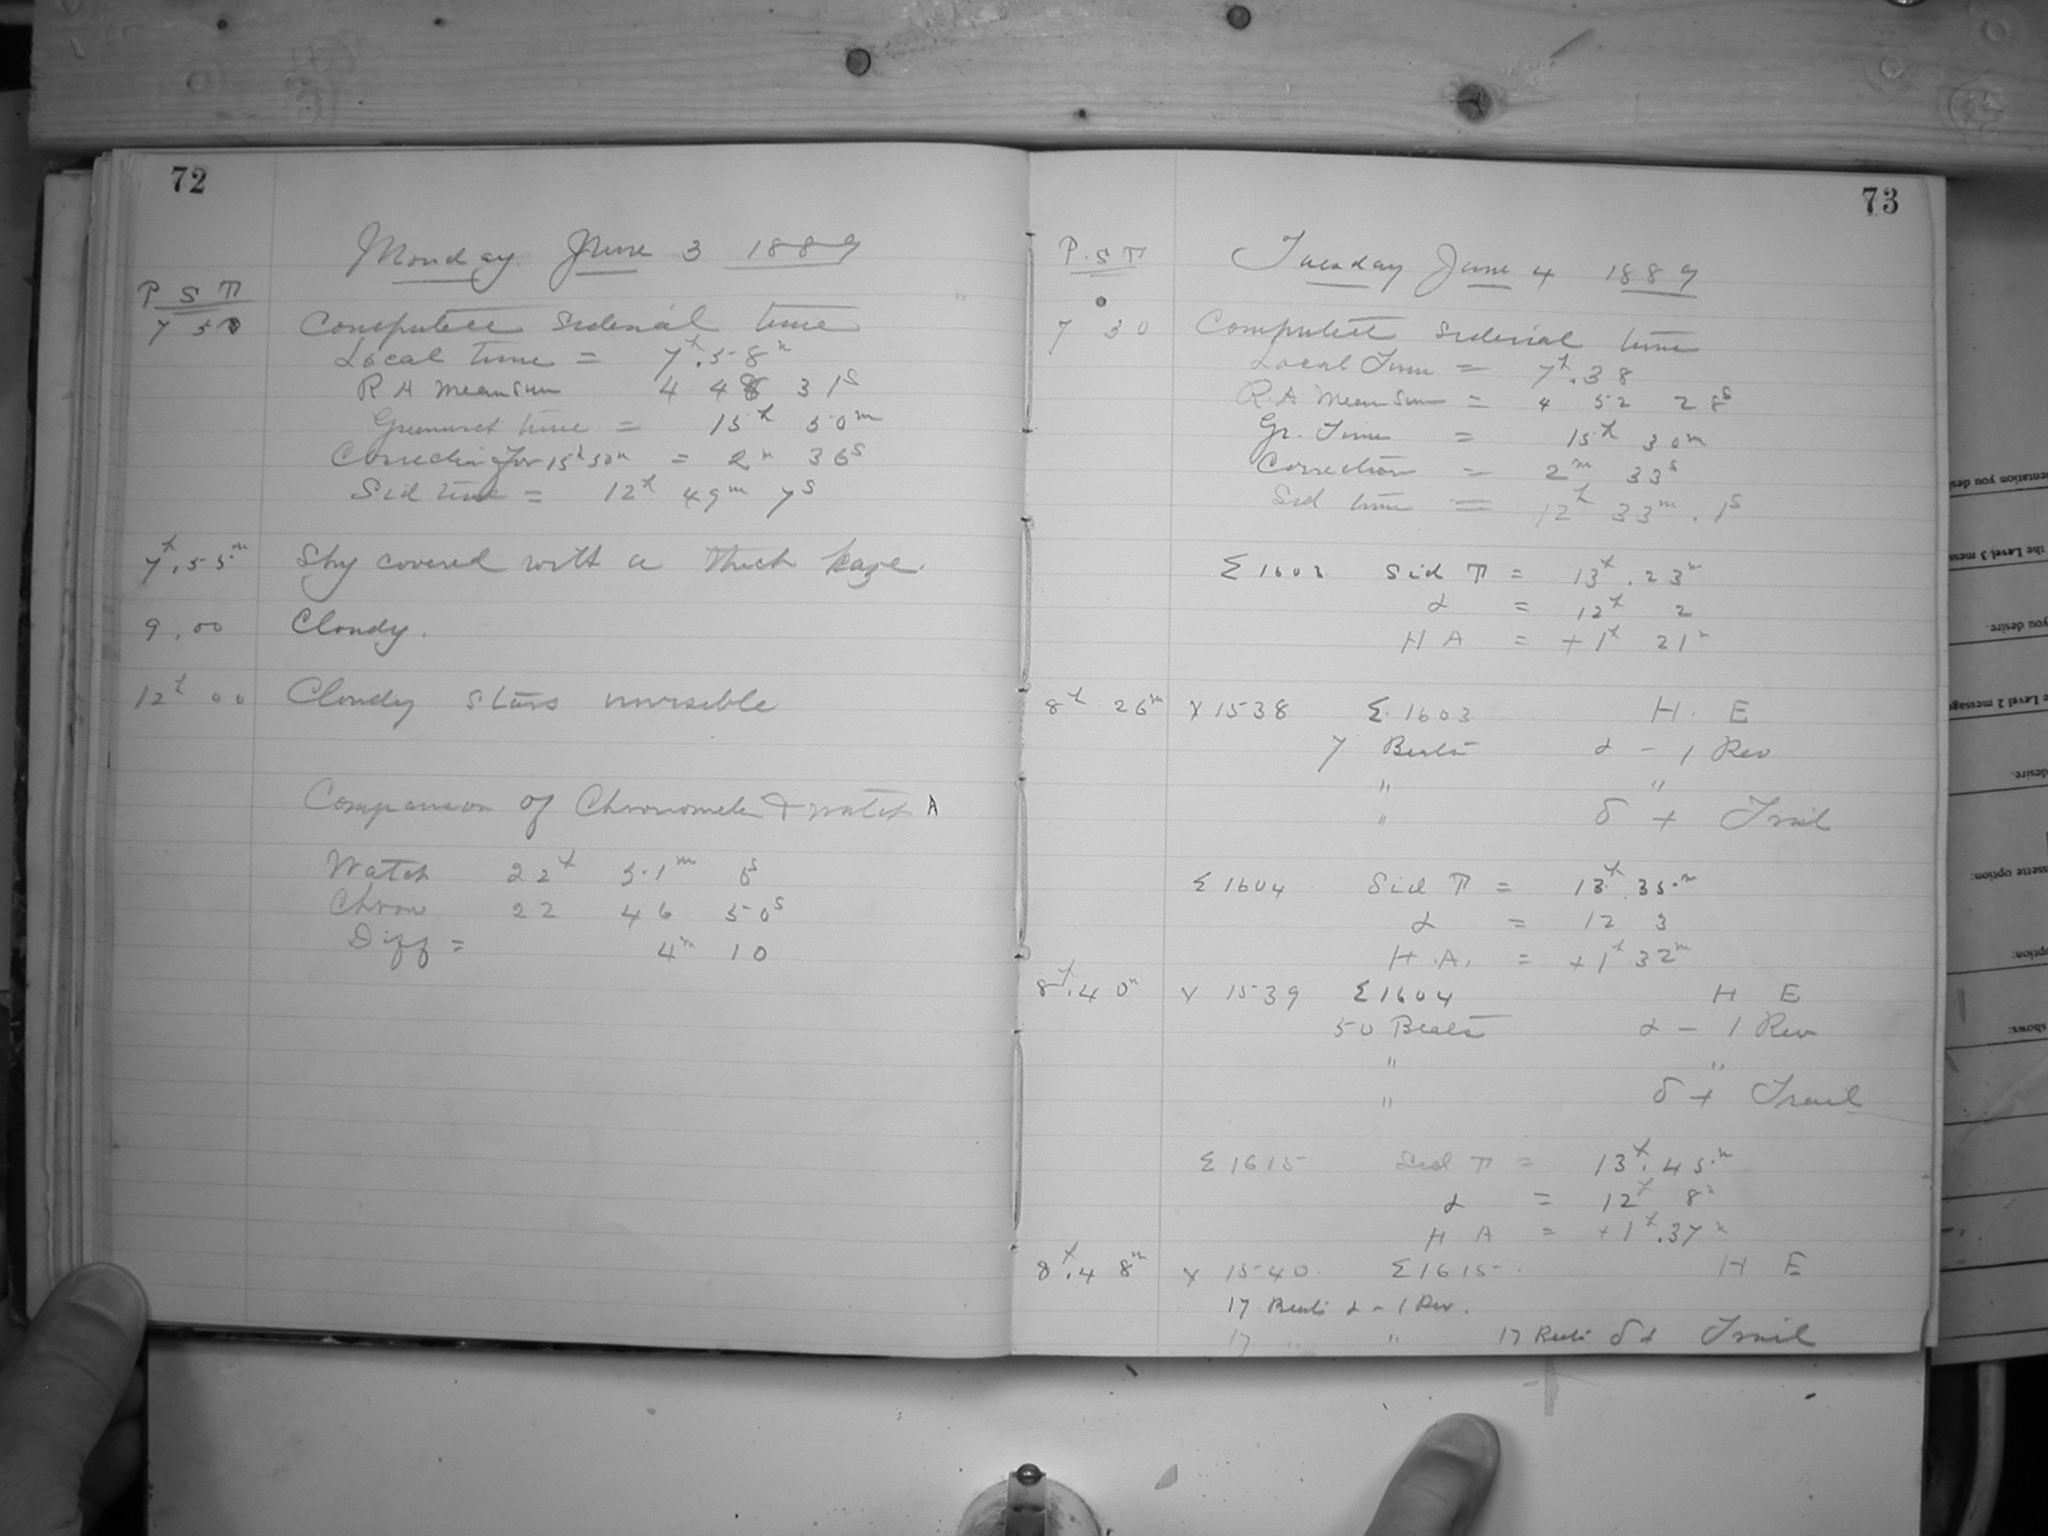 72
Monday June 3 1889
P S T
7 50 Computed siderial time
Local time = 7h.58m
R A Mean Sun 4 48 31s
Greenwich time = 15h 50m
Correction for 15h 50m = 2m 36s
Sid time = 12h 49m 7s
7h.55m Sky covered with a thick haze.
9.00 Cloudy.
12h 00 Cloudy stars invisible
Comparison of Chronometer & watch A
Watch 22h 51m 0s
Chron 22 46 50s
Diff = 4m 10
73
P.S T Tuesday June 4 1889
7 30 Computed siderial time
Local Time = 7h.38
R.A Mean Sun = 4 52 28s
Gr. Time = 15h 30m
Correction = 2m 33s
Sid time = 12h 33m.1s
Σ 1603 Sid T = 13h.23m
α = 12h 2
H A = +1h 21m
8h 26m X 1538 Σ.1603 H. E
7 Beats α - 1 Rev
" "
" δ + Trail
Σ 1604 Sid T = 13h.35m
α = 12 3
H.A. = +1h 32m
8h.40m X 1539 Σ1604 H E
50 Beats α - 1 Rev
" "
" δ + Trail
Σ 1615 Sid T = 13h.45m
α = 12h 8m
H A = +1h.37m
8h.48m X 1540. Σ1615. H E
17 Beats α - 1 Rev.
17 " " 17 Beats δ + Trail